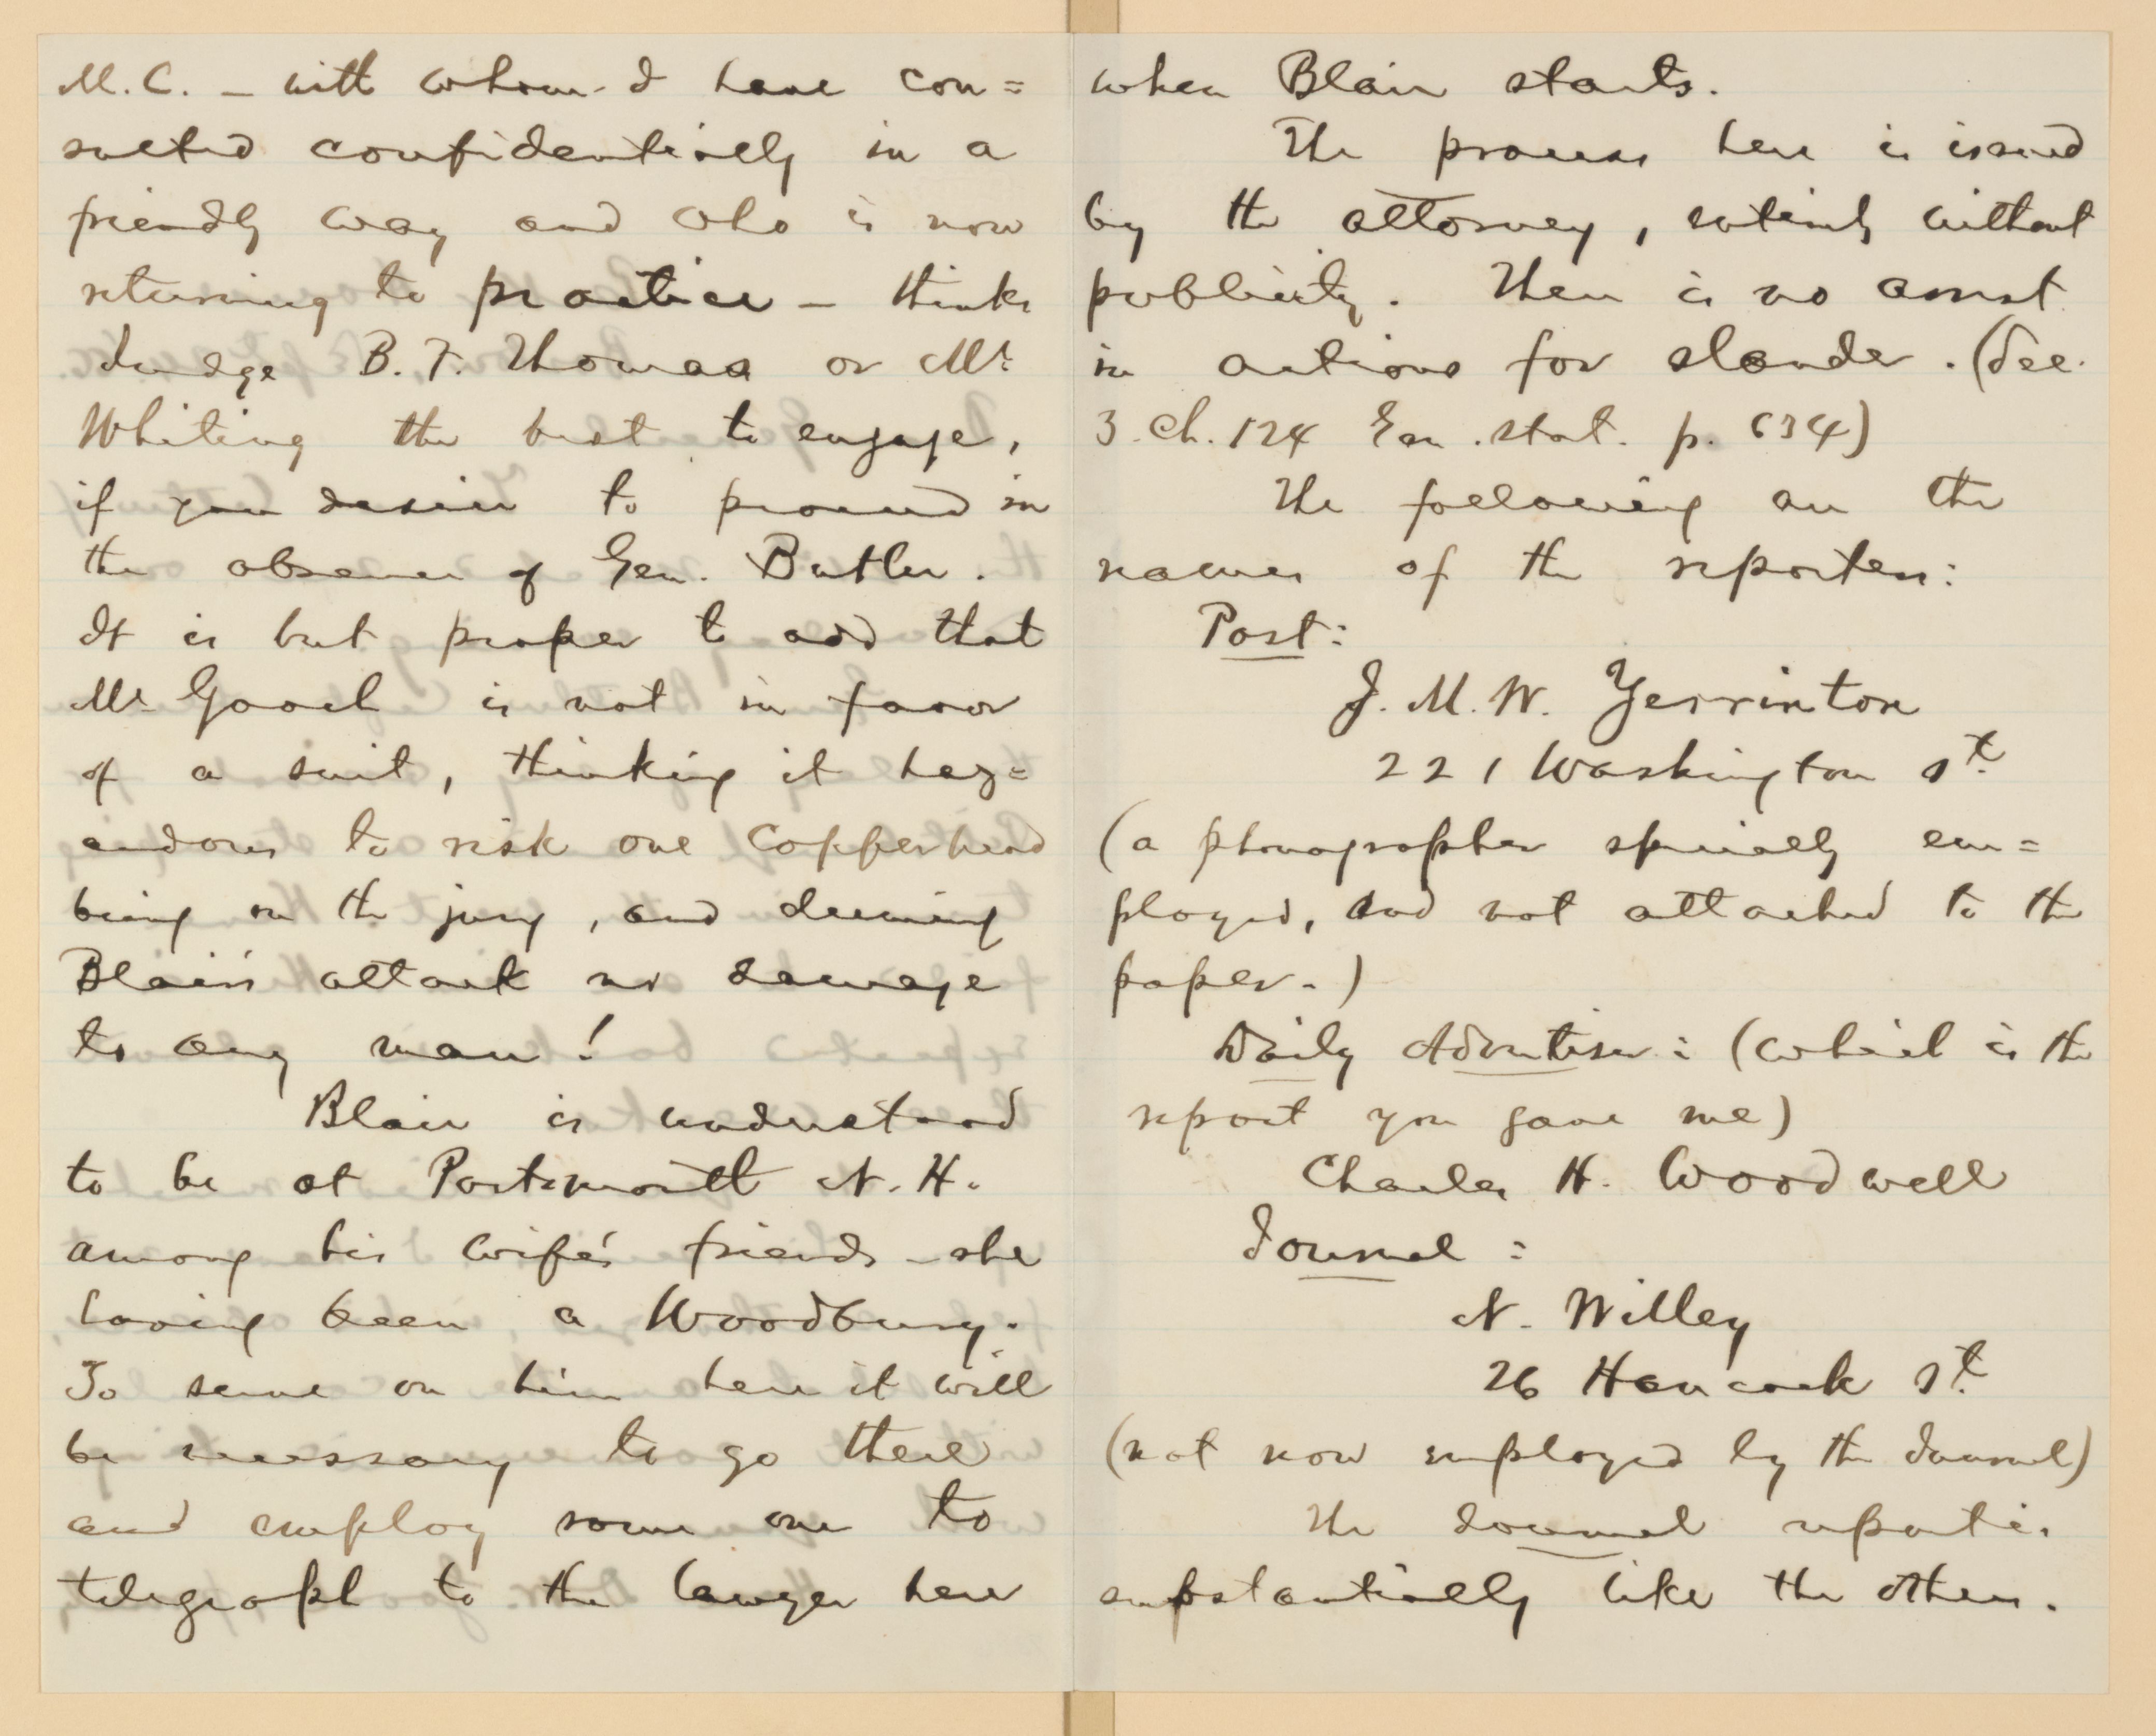 M. C. – with whom I have con=
sulted confidentially in a
friendly way and who is now
returning to practice – thinks
Judge B. F. Thomas or Mr.
Whiting the best to engage,
if you desire to proceed in
the absence of Gen. Butler.
It is but proper to add that
Mr. Gooch is not in favor
of a suit, thinking it haz=
ardous to risk one Copperhead
being on the jury, and deeming
Blair's attack no damage
to any man!
Blair is understood
to be at Portsmouth N. H.
among his wife's friends – she
having been a Woodbury.
To serve on him here it will
be necessary to go there
and employ some one to
telegraph to the lawyer here
when Blair starts.
The process here is issued
by the attorney, entirely without
publicity. There is no arrest
in actions for slander. (Sec.
3. Ch. 124 Gen. Stat. p. 634)
The following are the
names of the reporters:
Post:
J. M. W. Yerrinton
221 Washington St.
(a phonographer specially em=
ployed, and not attached to the
paper.)
Daily Advertiser: (which is the
report you gave me)
Charles H. Woodwell
Journal:
N. Willey
26 Hancock St.
(not now employed by the Journal)
The Journal report is
substantially like the others.